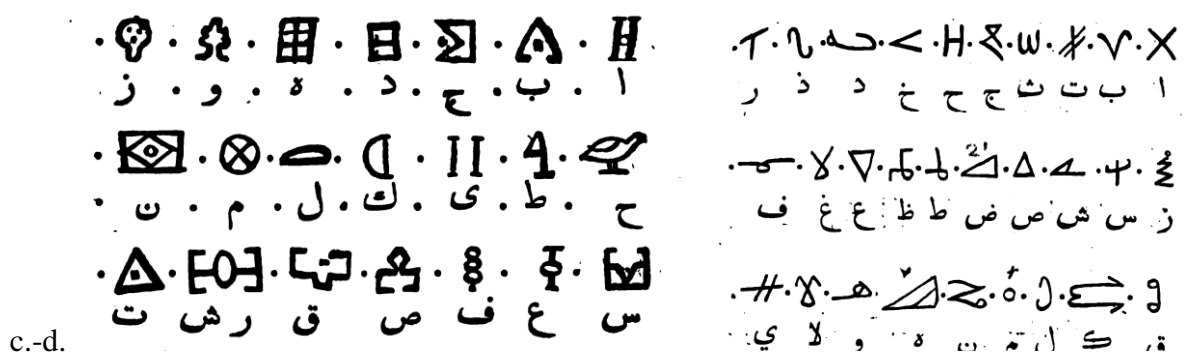 ا ب ج د ه و ز
ح ط ى ك ل م ن
س ع ف ص ق ر ش ت
ا ب ت ث ج ح خ د ذ ر
ز س ش ص ض ط ظ ع غ ف
ق ك ل م ن ه و لا ي
c.-d.